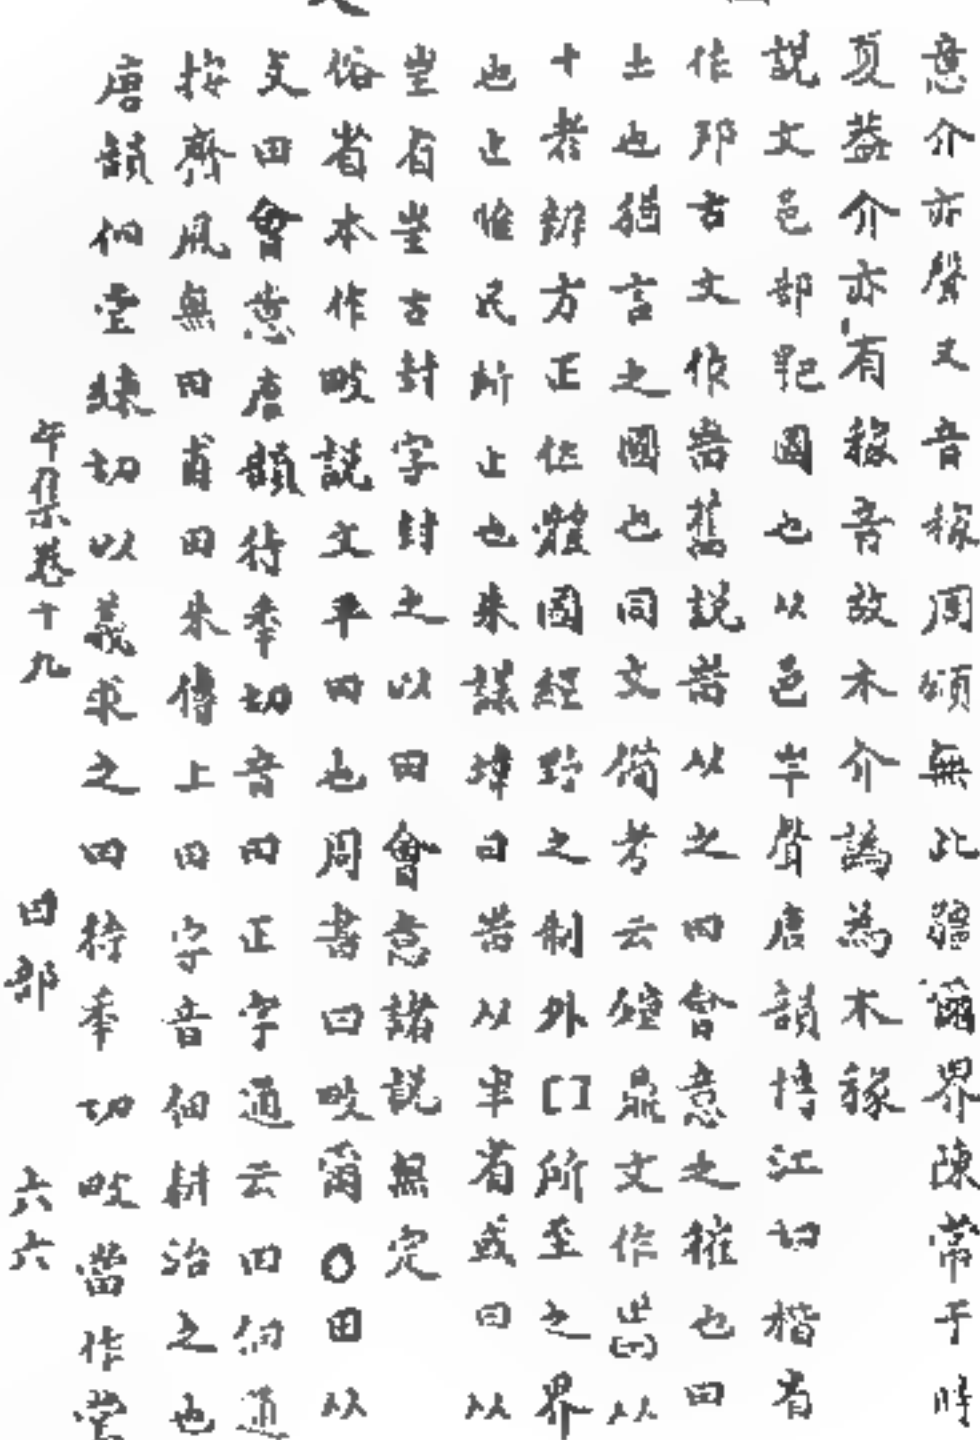 意介亦聲又音稼周頌無此疆爾界陳常于時
夏益介亦有稼音故木介譌為木稼
説文邑部𨛜國也以邑丰聲唐韻博江切楷省
作邦古文作𤰫舊説𤰫从之田會意之摧也田
土也猶言之國也同文備考云鐘鼎文作以
十者辨方正位體國經野之制外囗所至之界
也止惟民所止也朱謀㙔曰𤰫从丰省或曰以
㞷省㞷古封字封之以田會意諸説無定
俗省本作畋説文平田也周書曰畋爾〇田从
攵田會意唐韻待年切音田正字通云田佃通
按齊風無田甫田朱傳上田字音佃耕治之也
唐韻佃堂練切以義求之田待年切畋當作堂
午集卷十九 田部 六六